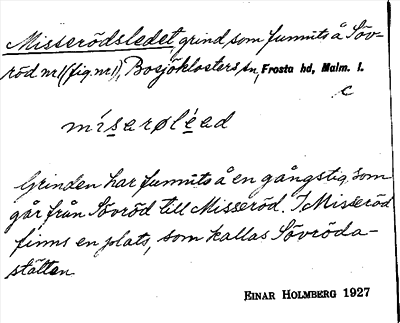 Misserödsledet grind som funnits å Söv-
röd nr 1 (fig. nr 1), Bosjöklosters sn, Frosta hd, Malm. l.
C
mìsarøléad
Grinden har funnits å en gångstig, som
går från Sövröd till Misseröd. I Misseröd
finns en plats, som kallas Sövröda-
stätten
EINAR HOLMBERG 1927